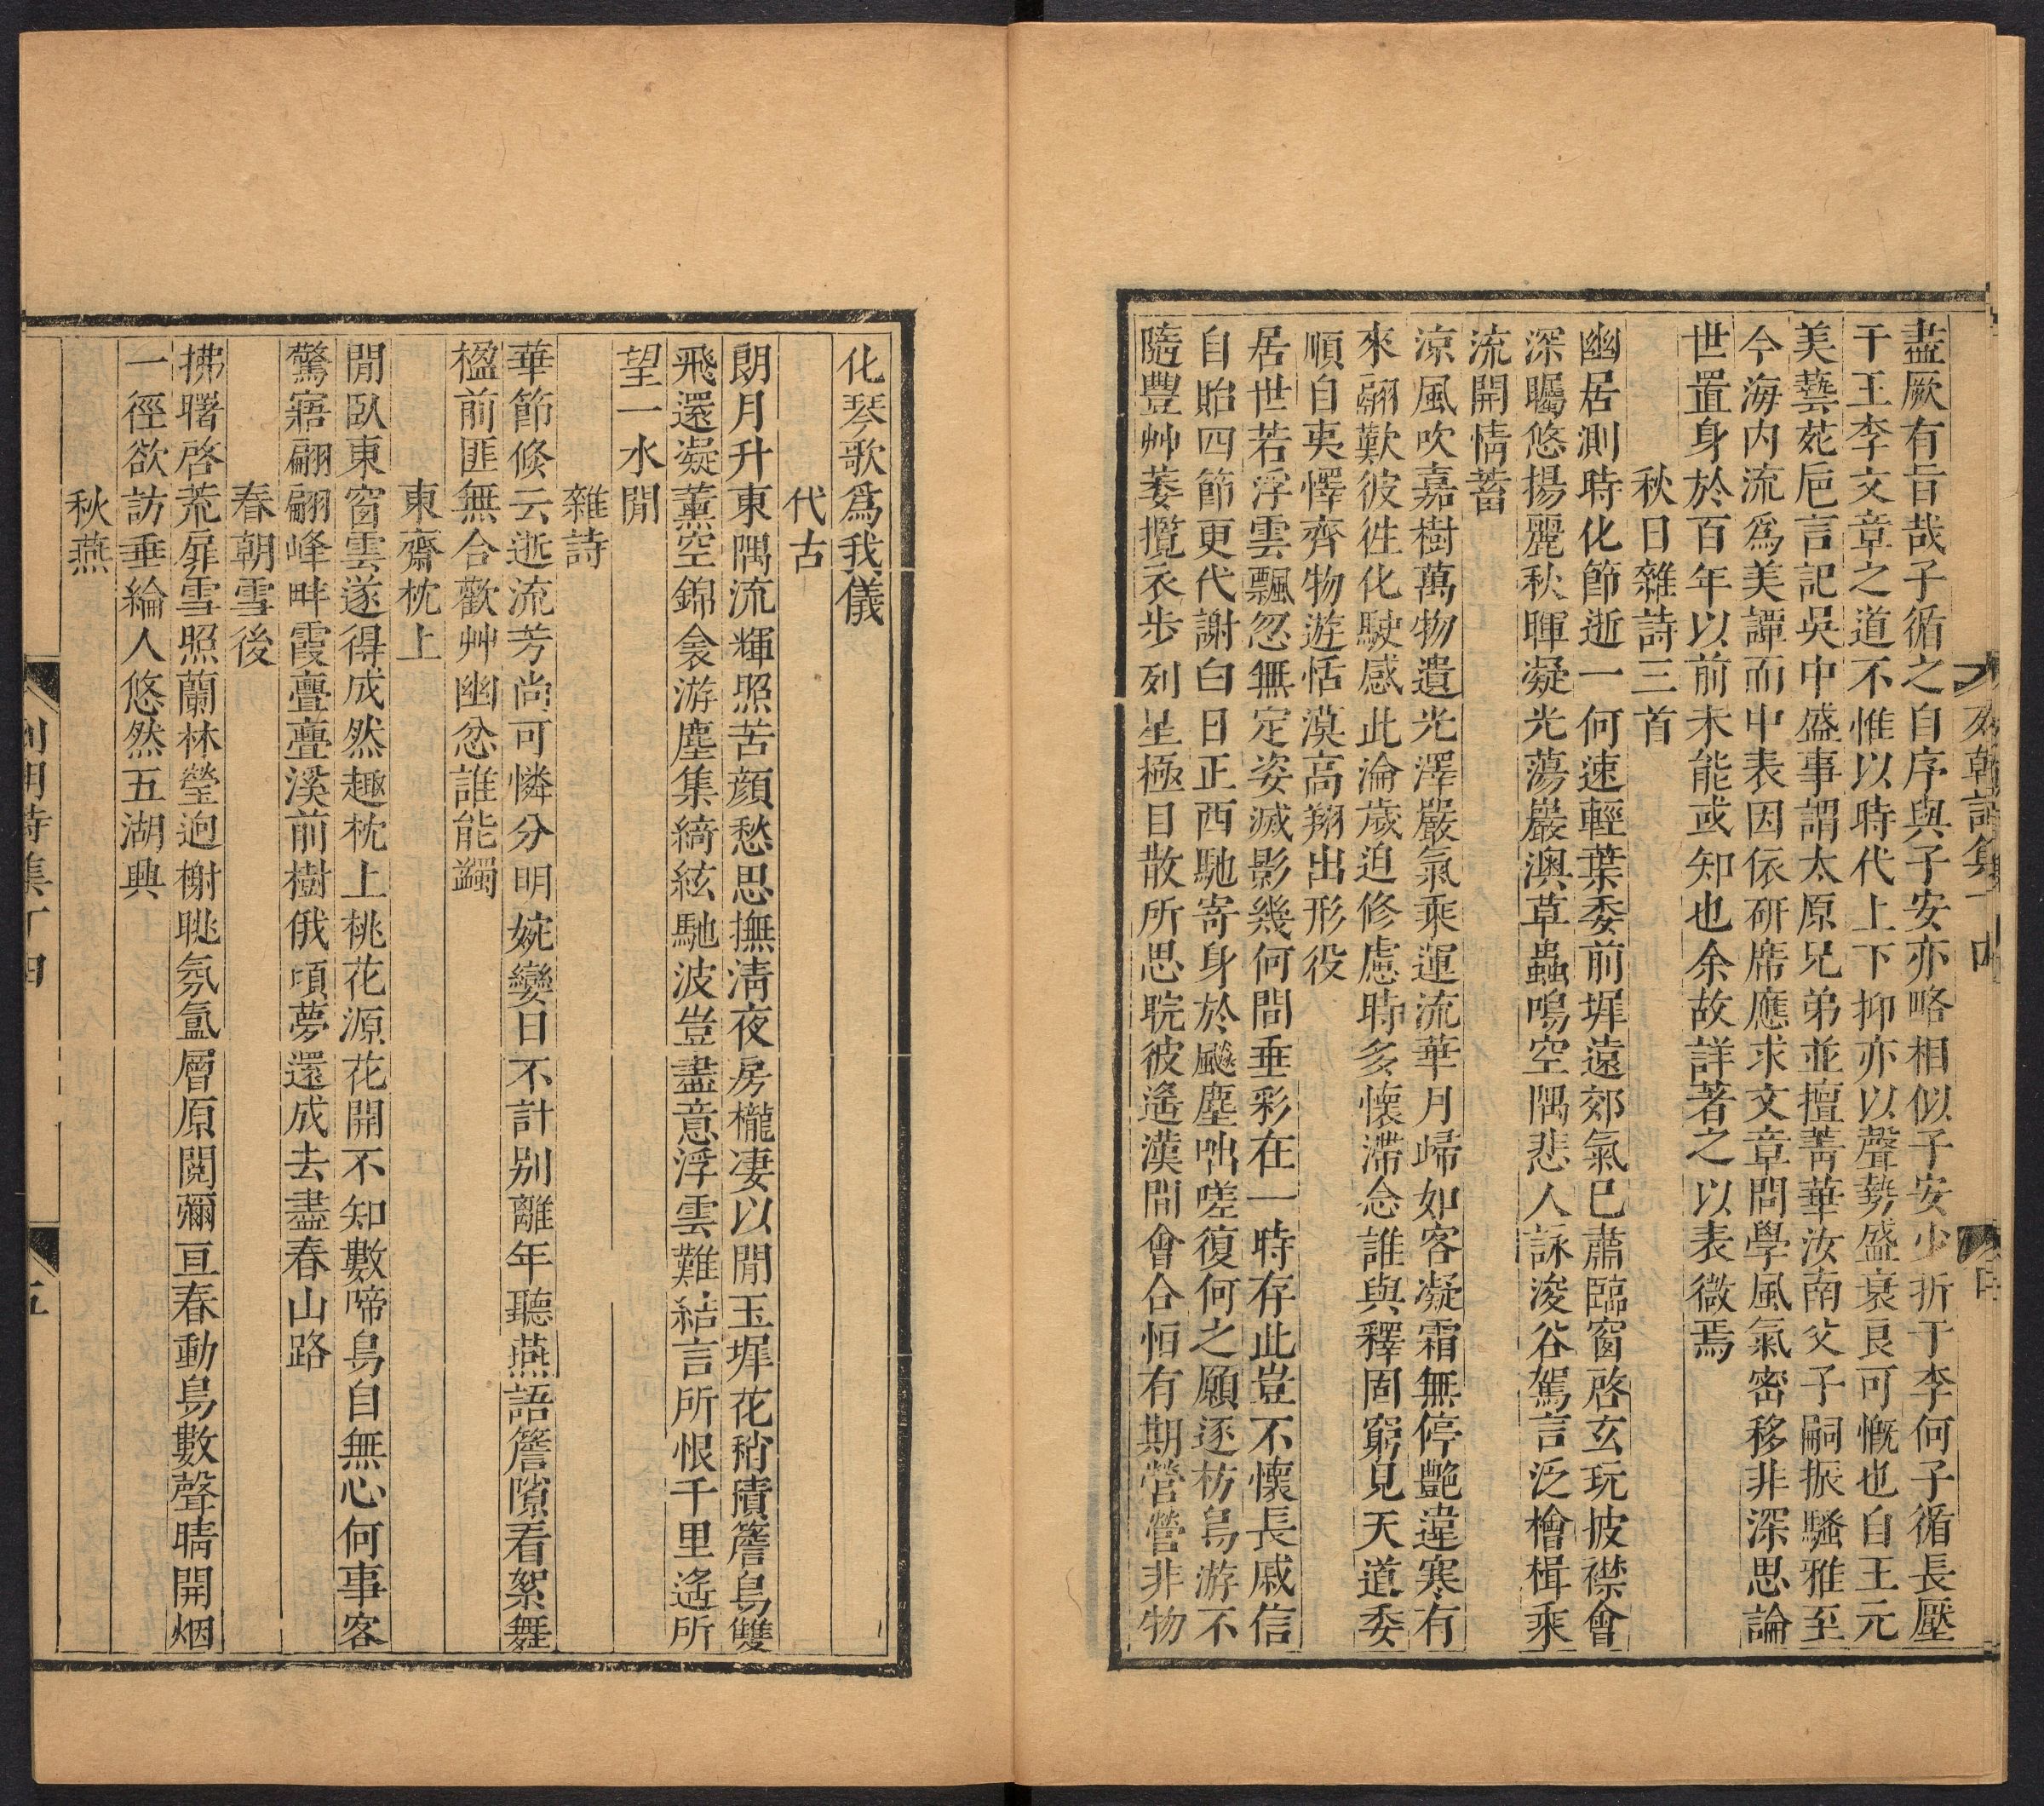 盡厥有旨哉子循之自序與子安亦略相似子安少折于李何子循長壓
于王李文章之道不惟以時代上下抑亦以聲勢盛衰良可慨也自王元
美藝苑巵言記吳中盛事謂太原兄弟並擅菁華汝南父子嗣振騷雅至
今海內流爲美譚而中表因依硏席應求文章問學風氣密移非深思論
世置身於百年以前未能或知也余故詳著之以表微焉
秋日雜詩三首
幽居測時化節逝一何速輕葉委前墀遠郊氣已肅臨窗啓玄玩披襟會
深矚悠揚麗秋暉凝光蕩巖澳草蟲鳴空隅悲人詠浚谷駕言泛檜楫乘
流開情蓄
涼風吹嘉樹萬物遺光澤嚴氣乘運流華月歸如客凝霜無停艶違寒有
來翮歎彼徃化駛感此淪歲迫修慮時多懷滯念誰與釋固窮見天道委
順自夷懌齊物遊恬漠高翔出形役
居世若浮雲飄忽無定姿滅影幾何問垂彩在一時存此豈不懷長戚信
自貽四節更代謝白日正西馳寄身於飈塵咄嗟復何之願逐枋鳥游不
隨豐艸萎攬衣步列星極目散所思睆彼遙漢間會合恒有期營營非物
化琴歌爲我儀
代古
朗月升東隅流輝照苦顔愁思撫淸夜房櫳凄以閒玉墀花稍積簷鳥雙
飛還凝薰空錦衾游塵集綺絃馳波豈盡意浮雲難結言所恨千里遙所
望一水閒
雜詩
華節倏云逝流芳尚可憐分明婉孌日不計別離年聽燕語簷隙看絮舞
楹前匪無合歡艸幽忿誰能蠲
東齋枕上
閒臥東窗雲遂得成然趣枕上桃花源花開不知數啼鳥自無心何事客
驚寤翩翩峰畔霞亹亹溪前樹俄頃夢還成去盡春山路
春朝雪後
拂曙啓荒扉雪照蘭林瑩迥榭眺氛氳層原閱彌亘春動鳥數聲晴開烟
一徑欲訪垂綸人悠然五湖興
秋燕
列朝詩集丁四
五